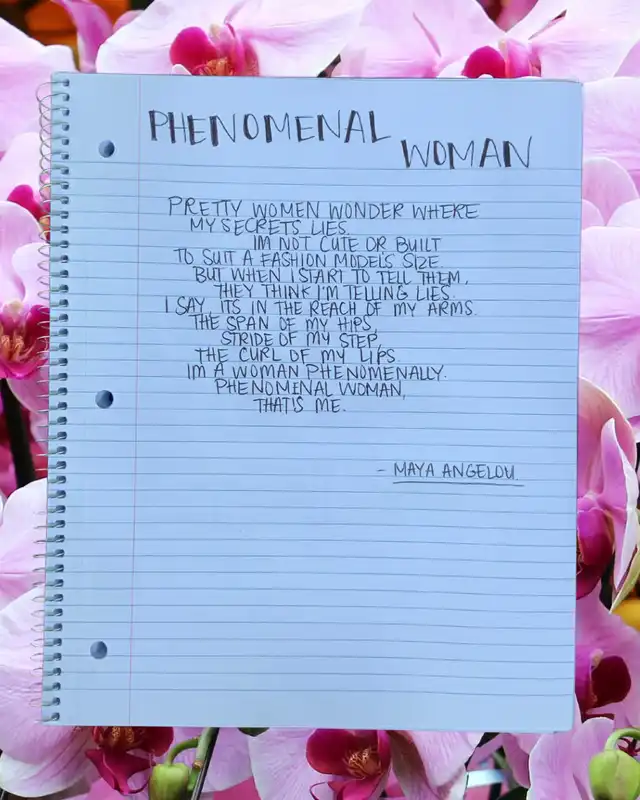 PHENOMENAL
WOMAN
PRETTY WOMEN WONDER WHERE
MY SECRETS LIES.
IM NOT CUTE OR BUILT
TO SUIT A FASHION MODELS SIZE.
BUT WHEN I START TO TELL THEM,
THEY THINK I'M TELLING LIES.
I SAY ITS IN THE REACH OF MY ARMS.
THE SPAN OF MY HIPS,
STRIDE OF MY STEP,
THE CURL OF MY LIPS
IM A WOMAN PHENOMENALLY.
PHENOMENAL WOMAN,
THAT'S ME.
- MAYA ANGELOU.